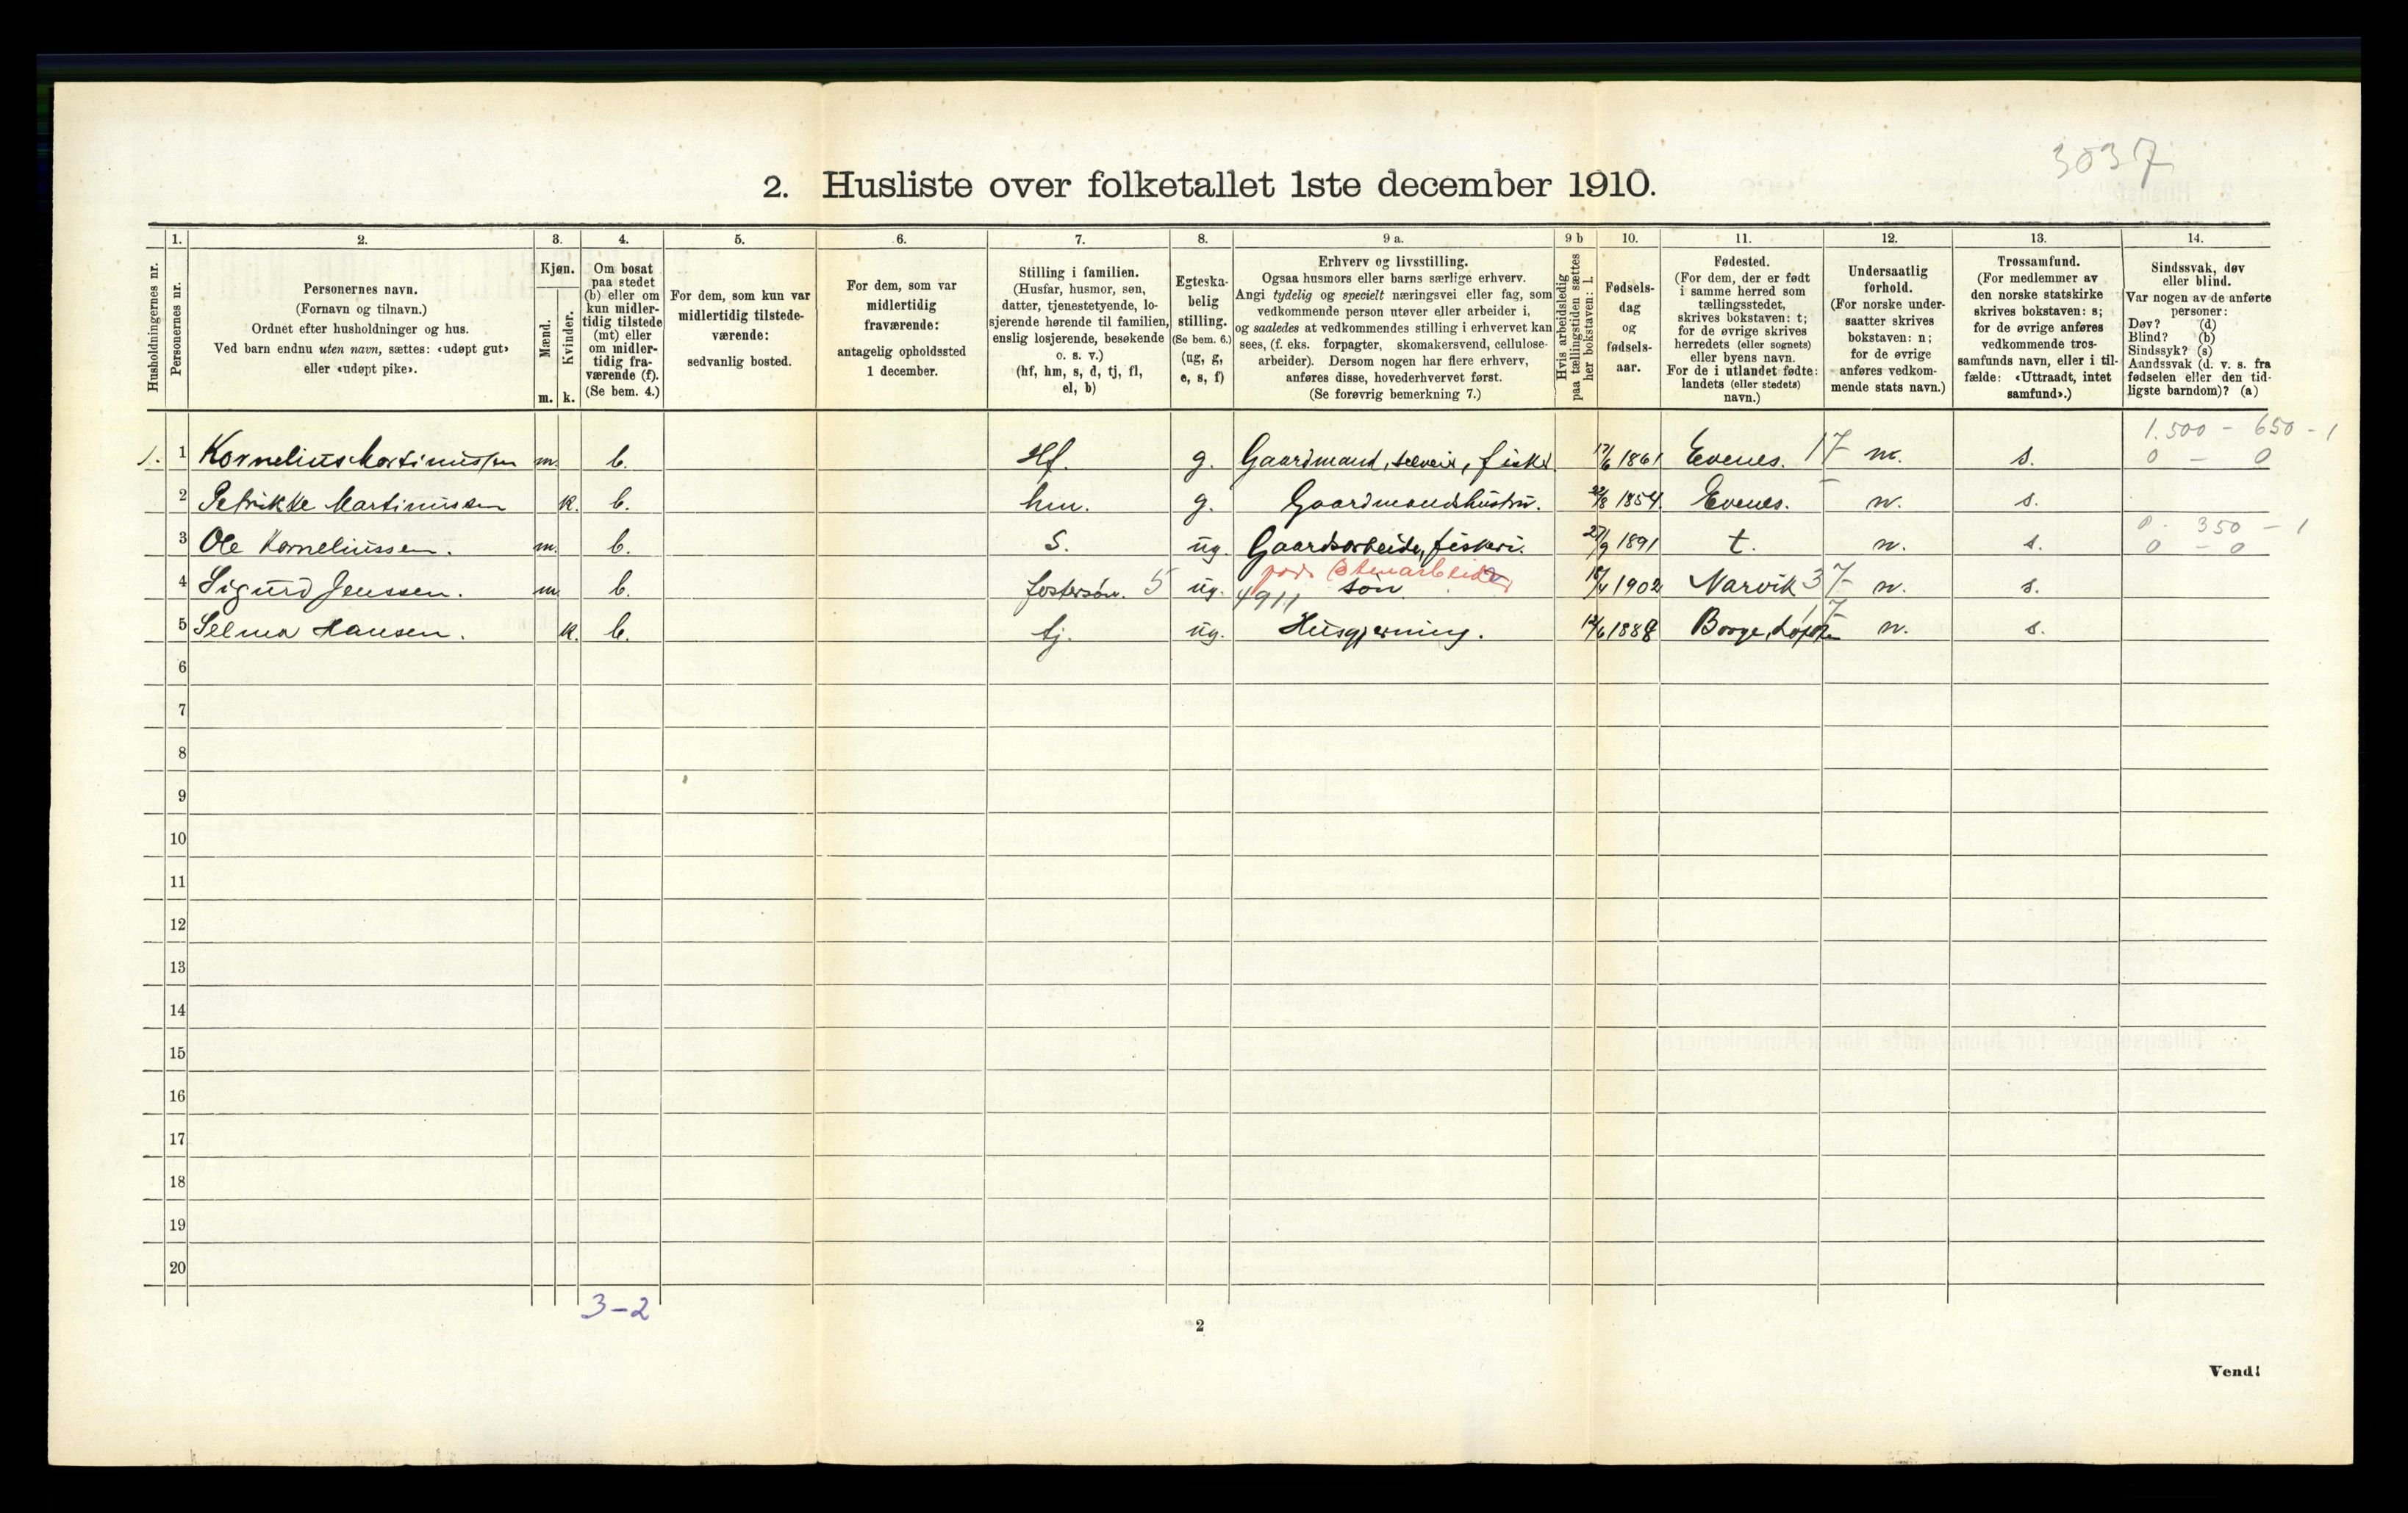 3037
2. Husliste over folketallet 1ste december 1910.
Husholdningernes nr.
1.
Personernes nr.
2.
Personernes navn.
(Fornavn og tilnavn.)
Ordnet efter husholdninger og hus.
Ved barn endnu uten navn, sættes: «udøpt gut»
eller «udøpt pike».
3.
Kjøn.
Mænd.
Kvinder.
m.
k.
4.
Om bosat
paa stedet
(b) eller om
kun midler-
tidig tilstede
(mt) eller
om midler-
tidig fra-
værende (f).
(Se bem. 4.)
5.
For dem, som kun var
midlertidig tilstede-
værende:
sedvanlig bosted.
6.
For dem, som var
midlertidig
fraværende:
antagelig opholdssted
1 december.
7.
Stilling i familien.
(Husfar, husmor, søn,
datter, tjenestetyende, lo-
sjerende hørende til familien,
enslig losjerende, besøkende
o. s. v.)
(hf, hm, s, d, tj, fl,
el, b)
8.
Egteska-
belig
stilling.
(Se bem. 6.)
(ug, g,
e, s, f)
9 a.
Erhverv og livsstilling.
Ogsaa husmors eller barns særlige erhverv.
Angi tydelig og specielt næringsvei eller fag, som
vedkommende person utøver eller arbeider i,
og saaledes at vedkommendes stilling i erhvervet kan
sees, (f. eks. forpagter, skomakersvend, cellulose-
arbeider). Dersom nogen har flere erhverv,
anføres disse, hovederhvervet først.
(Se forøvrig bemerkning 7.)
9 b
Hvis arbeidsledig
paa tællingstiden sættes
her bokstaven: l.
10.
Fødsels-
dag
og
fødsels-
aar.
11.
Fødested.
(For dem, der er født
i samme herred som
tællingsstedet,
skrives bokstaven: t;
for de øvrige skrives
herredets (eller sognets)
eller byens navn.
For de i utlandet fødte:
landets (eller stedets)
navn.)
12.
Undersaatlig
forhold.
(For norske under-
saatter skrives
bokstaven: n;
for de øvrige
anføres vedkom-
mende stats navn.)
13.
Trossamfund.
(For medlemmer av
den norske statskirke
skrives bokstaven: s;
for de øvrige anføres
vedkommende tros-
samfunds navn, eller i til-
fælde: «Uttraadt, intet
samfund».)
14.
Sindssvak, døv
eller blind.
Var nogen av de anførte
personer:
Døv? (d)
Blind? (b)
Sindssyk? (s)
Aandssvak (d. v. s. fra
fødselen eller den tid-
ligste barndom)? (a)
1.500 - 650 - 1
1. 1 Kornelius Martinussen m. b. Hf. g. Gaardmand, selveir, fisker 17/6 1861 Evenes. 17 n. s. 0 - 0
2 Petrikke Martinussen k. b. hm. g. Gaardmandshustru. 22/8 1854. Evenes. n. s.
0. 350 - 1
3 Ole Korneliussen. m. b. S. ug. Gaardsarbeide, fiskeri. 27/9 1891 t. n. s. 0 - 0
Stenarbeider
4 Sigurd Jenssen. m. b. fostersøn. 5 ug. 4911 søn 18/4 1902 Narvik 37 n. s.
5 Selma Hansen. k. b. tj. ug. Husgjerning. 12/6 1888 Borge, Lofoten 17 n. s.
6
7
8
9
10
11
12
13
14
15
16
17
18
19
20
3-2
2
Vend!